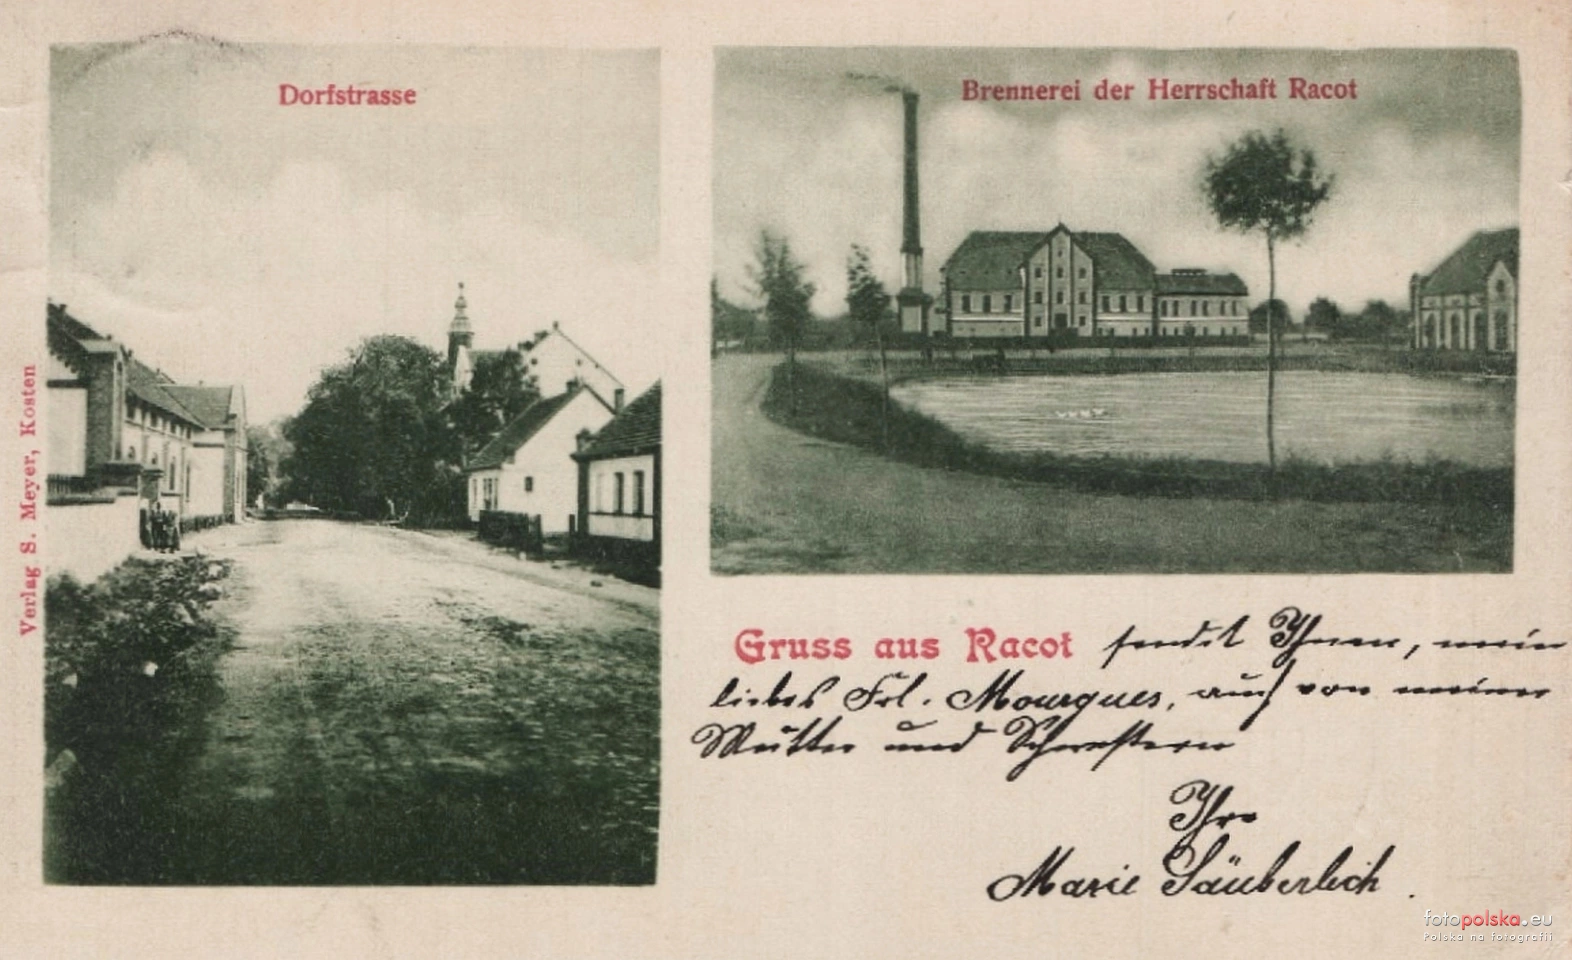 Dorfstrasse
Brennerei der Herrschaft Racot
Verlag S. Meyer, Kosten
Gruss aus Racot sendet Ihnen, mein
liebes Frl. Mourgues, auch von meiner
Mutter und Schwestern
Ihre
Marie Säuberlich.
fotopolska.eu
Polska na fotografii